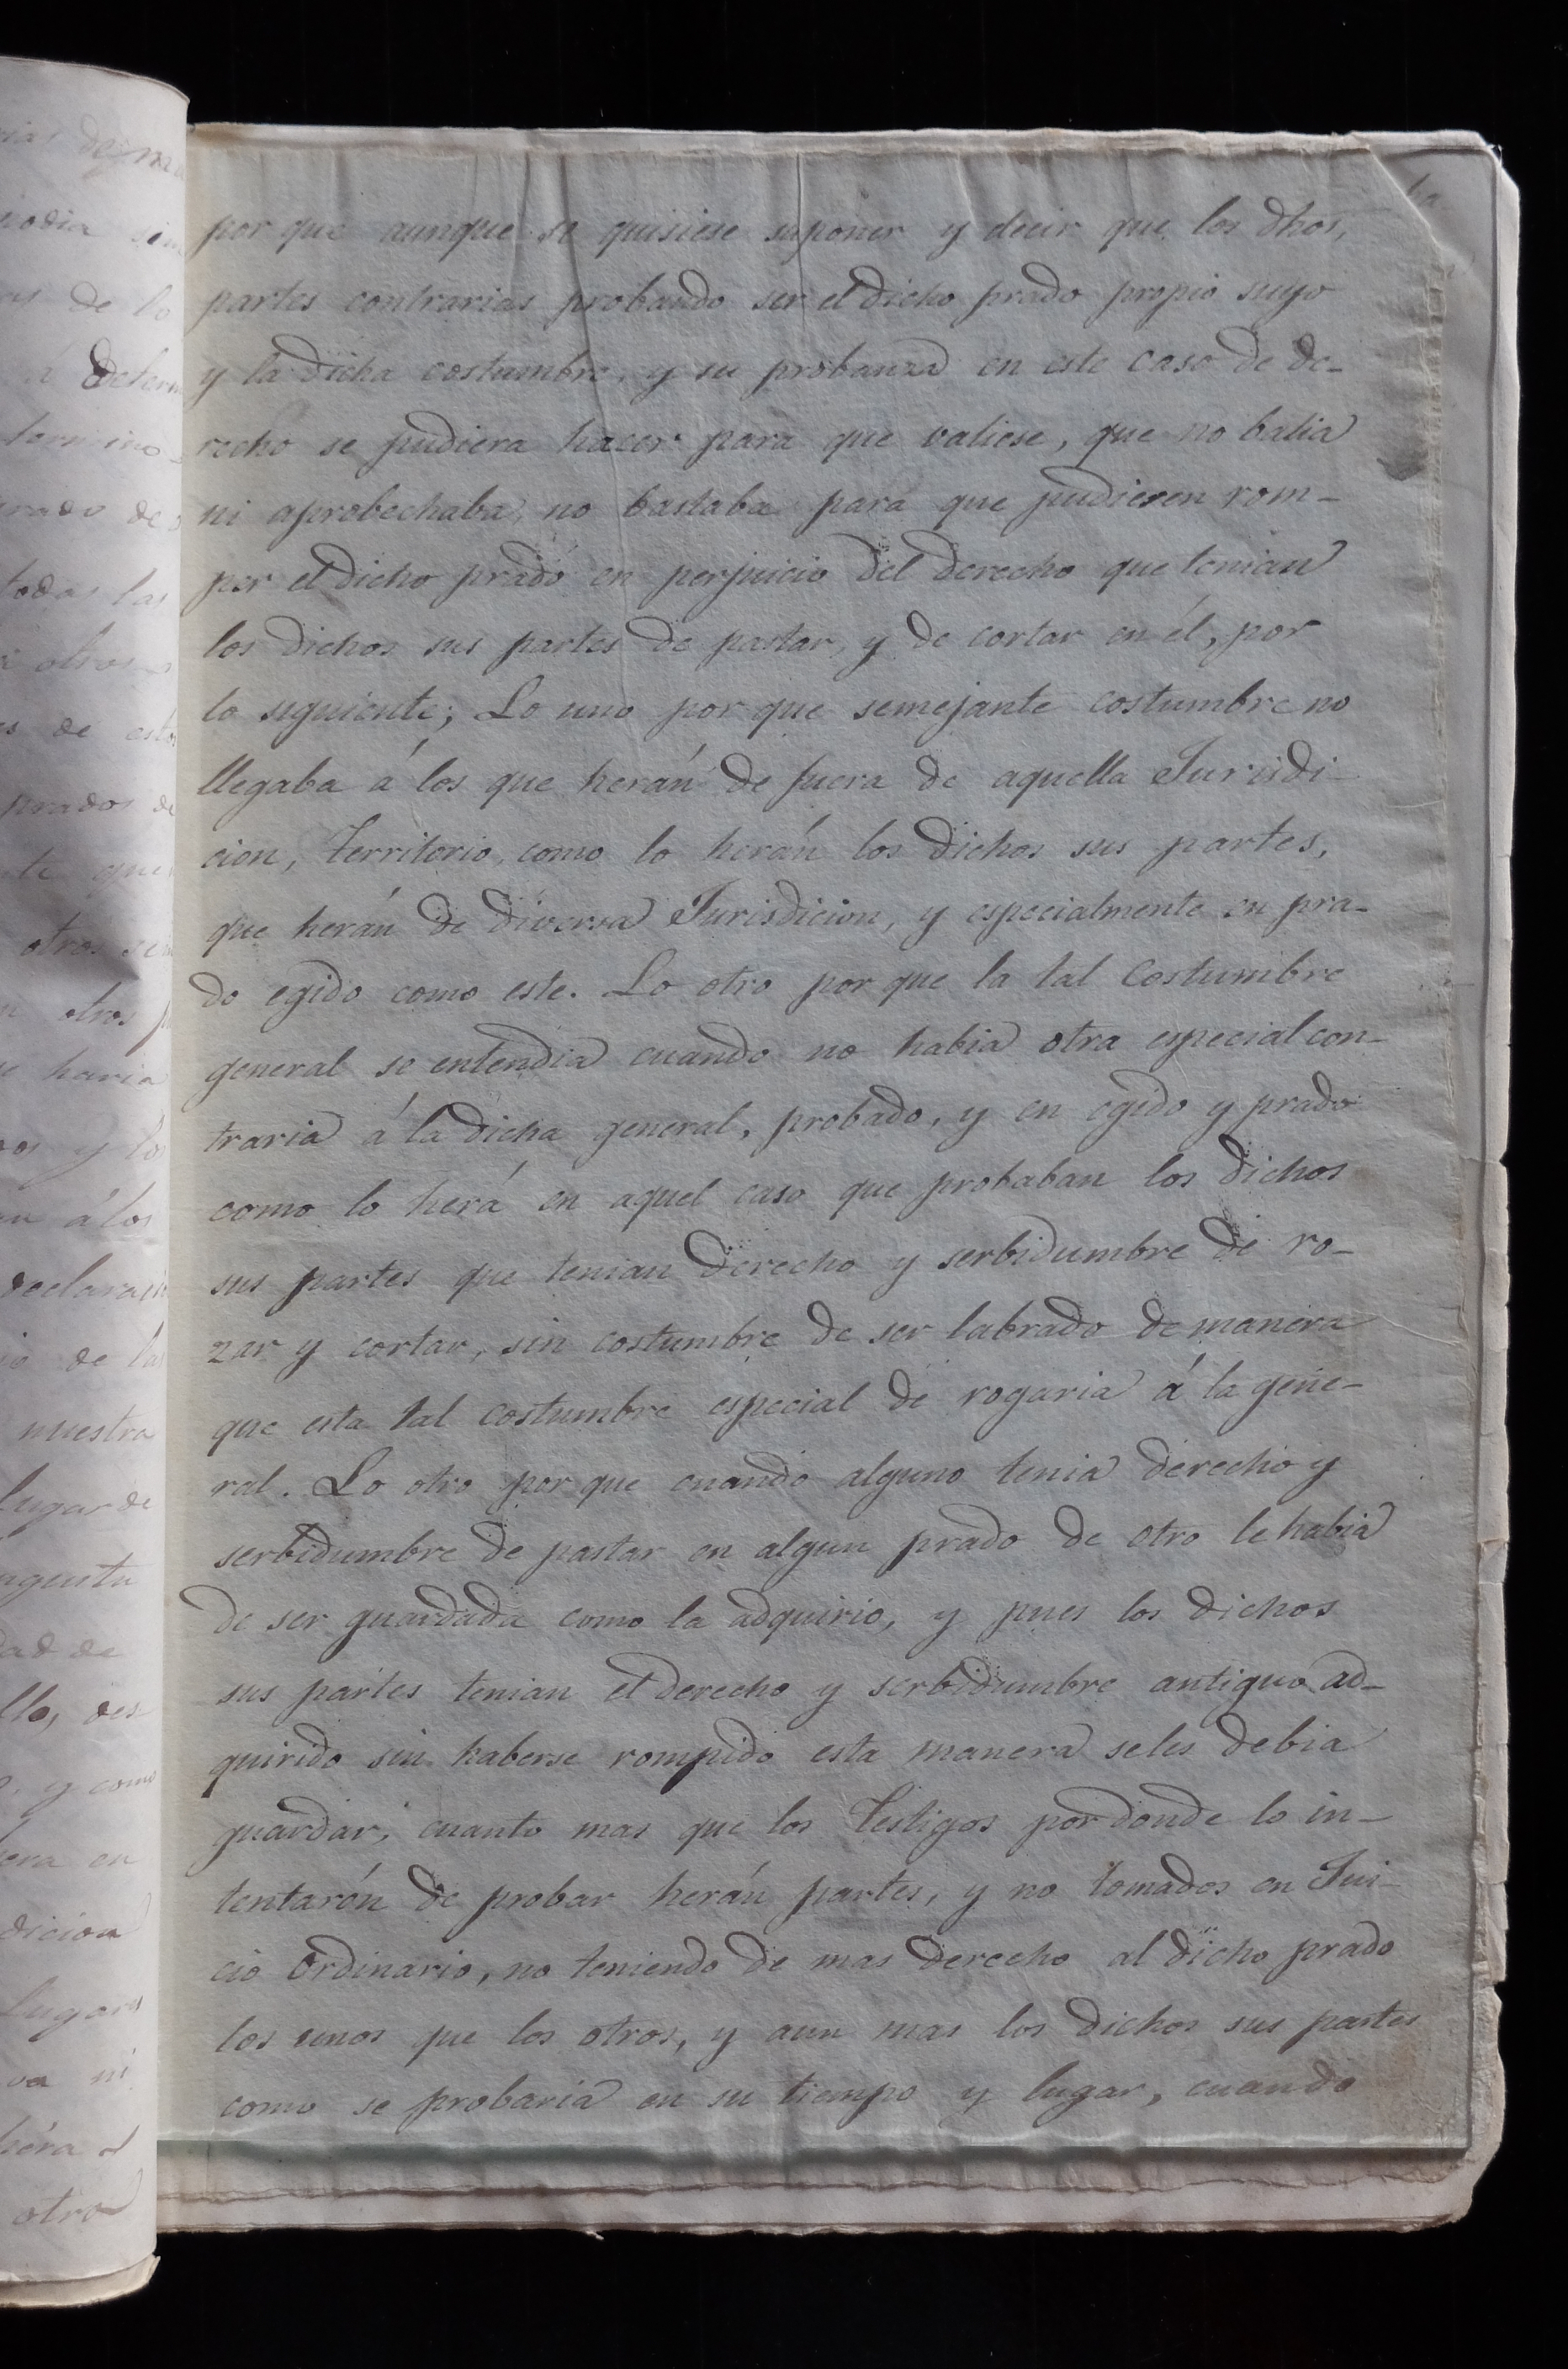 por que aunque se quisiese suponer y decir que los dhos,
partes contrarias probando ser el dicho prado propio suyo
y la dicha costumbre, y su probanza en este caso de de-
recho se pudiera hacer para que valiese, que no balia
ni aprobechaba, no bastaba para que pudiesen rom-
per el dicho prado en perjuicio del derecho que tenian
los dichos sus partes de pastar, y de cortar en él, por
lo siguiente; Lo uno por que semejante costumbre no
llegaba á los que herán de fuera de aquella Jurisdi-
cion, Territorio, como lo herán los dichos sus partes,
que herán de diversa Jurisdicion, y especialmente en pra-
do egido como este. Lo otro por que la tal Costumbre
general se entendia cuando no habia otra especial con-
traria á la dicha general, probado, y en egido y prado
como lo herá en aquel caso que probaban los dichos
sus partes que tenian derecho y serbidumbre de ro-
zar y cortar, sin costumbre de ser labrado de manera
que esta tal costumbre especial de rogaria á la gene-
ral. Lo otro por que cuando alguno tenia derecho y
serbidumbre de pastar en algun prado de otro le habia
de ser guardada como la adquirio, y pues los dichos
sus partes tenian el derecho y serbidumbre antiguo ad-
quirido sin haberse rompido esta manera seles debia
guardar, cuanto mas que los Testigos por donde lo in-
tentarón de probar herán partes, y no tomados en Jui-
cio Ordinario, no teniendo de mas derecho al dicho prado
los unos que los otros, y aun mas los dichos sus partes
como se probaria en su tiempo y lugar, cuando